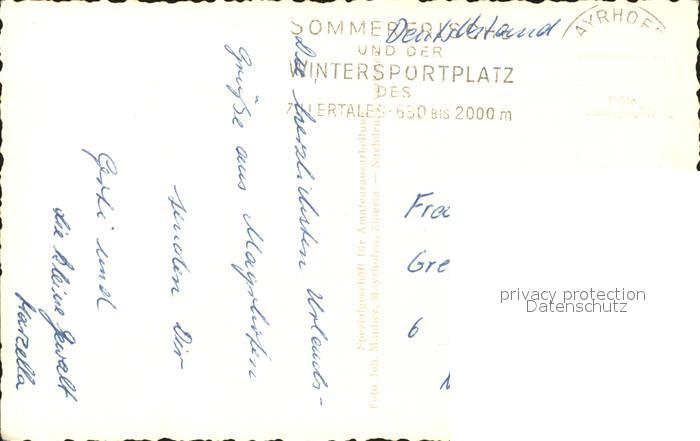 Die herzlichsten Urlaubs-
Grüße aus Mayrhofen
senden Dir
Gerti und
die kleine Gewalt
Marzella
SOMMERFRISCHE
UND DER
WINTERSPORTPLATZ
DES
ZILLERTALES · 630 BIS 2000 m
AYRHOF
Deutschland
Spezialgeschäft für Amateurausarbeitung
Foto Joh. Mauller, Mayrhofen, Zillertal — Nachdruck
Fre
Gre
6
privacy protection
Datenschutz